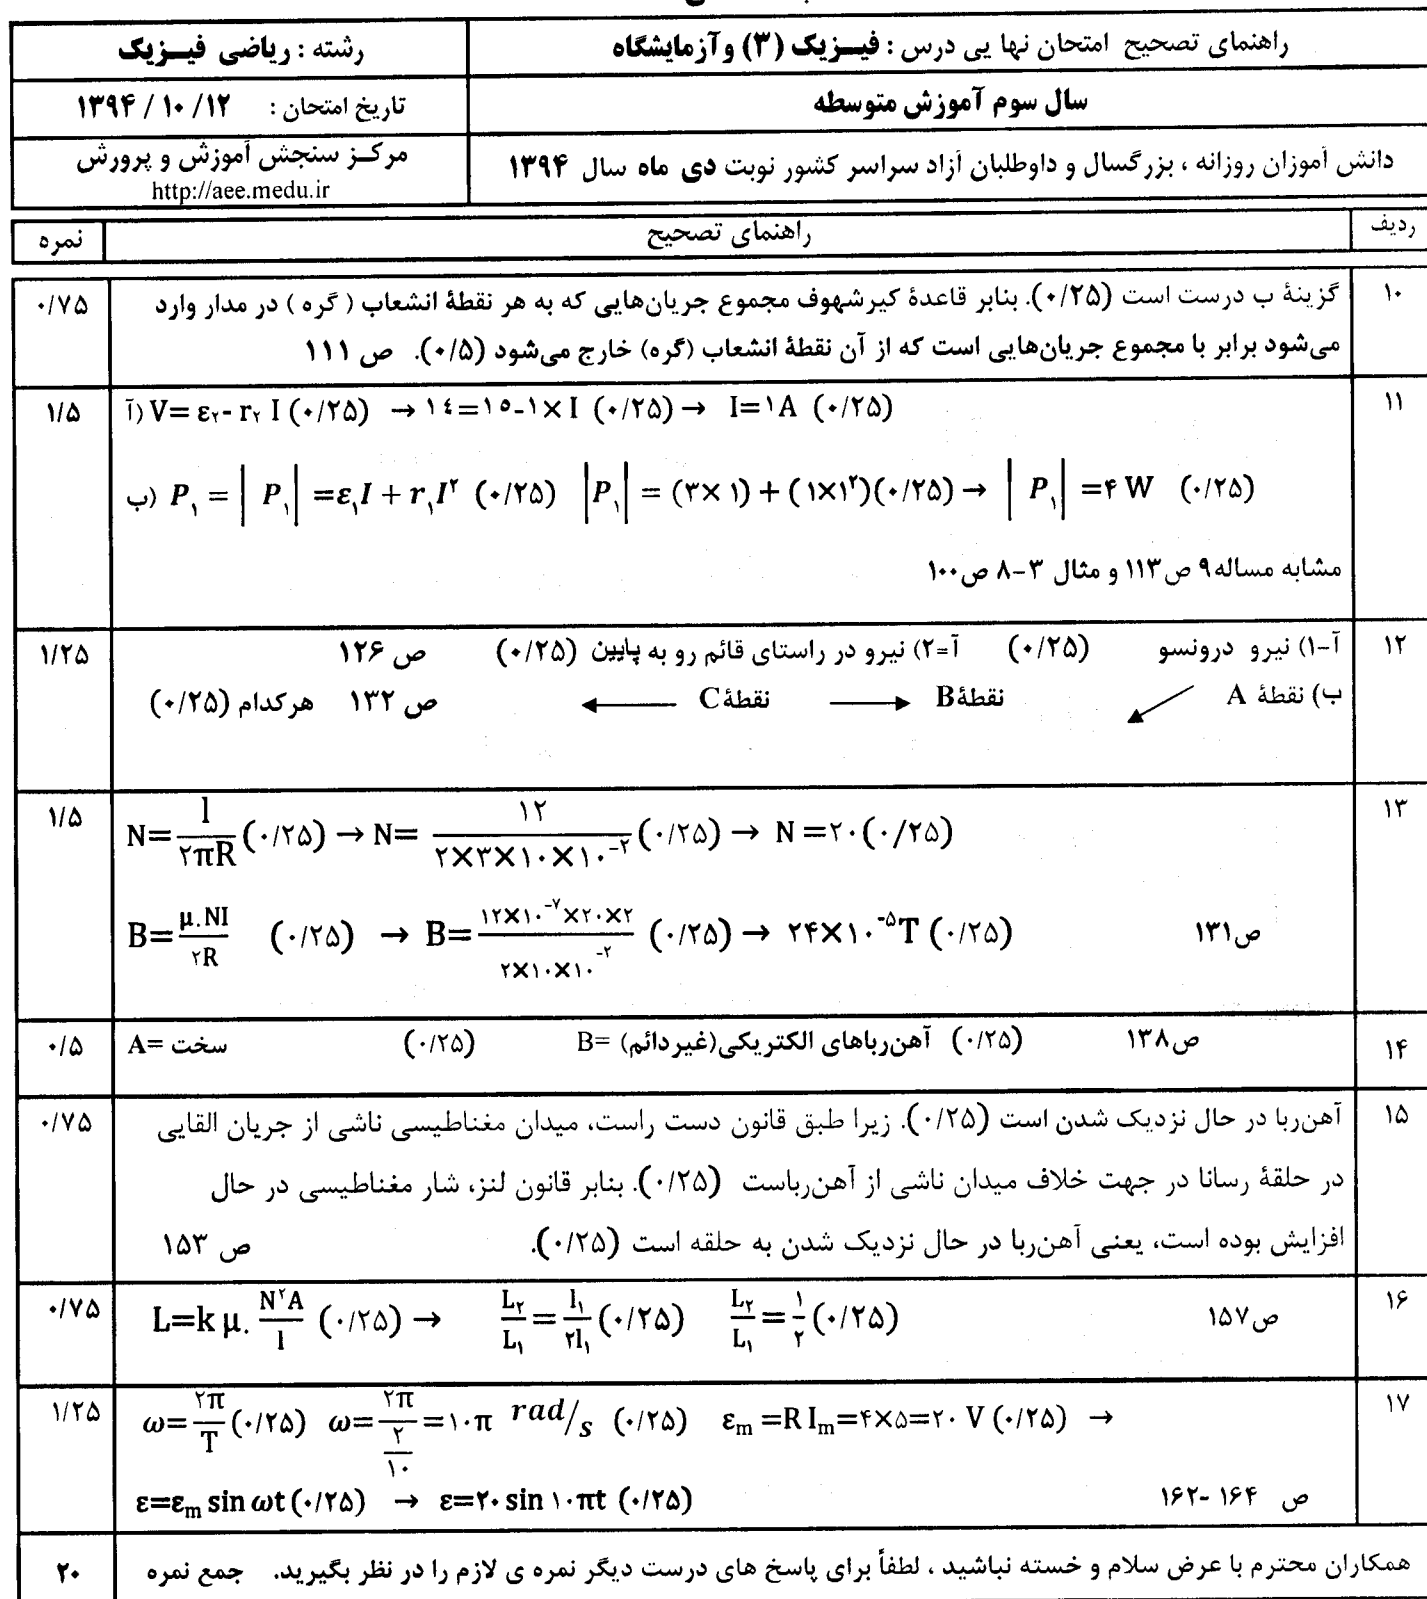 راهنمای تصحیح امتحان نها یی درس : فیــزیک (۳) و آزمایشگاه
رشته : ریاضی فیــزیک
سال سوم آموزش متوسطه
تاریخ امتحان : ۱۲/ ۱۰ / ۱۳۹۴
دانش آموزان روزانه ، بزرگسال و داوطلبان آزاد سراسر کشور نوبت دی ماه سال ۱۳۹۴
مرکــز سنجش آموزش و پرورش
http://aee.medu.ir
ردیف راهنمای تصحیح نمره
۱۰ گزینهٔ ب درست است (۰/۲۵). بنابر قاعدهٔ کیرشهوف مجموع جریان‌هایی که به هر نقطهٔ انشعاب ( گره ) در مدار وارد ۰/۷۵
می‌شود برابر با مجموع جریان‌هایی است که از آن نقطهٔ انشعاب (گره) خارج می‌شود (۰/۵). ص ۱۱۱
۱۱ آ) V= ε₂- r₂ I (۰/۲۵) → ۱٤=۱٥-۱× I (۰/۲۵) → I=۱A (۰/۲۵) ۱/۵
ب) P₁ = | P₁ | =ε₁I + r₁I² (۰/۲۵) |P₁| = (۳× ۱) + (۱×۱²)(۰/۲۵) → | P₁ | =۴ W (۰/۲۵)
مشابه مساله۹ ص۱۱۳ و مثال ۳-۸ ص۱۰۰
۱۲ آ-۱) نیرو درونسو (۰/۲۵) آ=۲) نیرو در راستای قائم رو به پایین (۰/۲۵) ص ۱۲۶ ۱/۲۵
ب) نقطهٔ A ↙ نقطهٔB → نقطهٔC ← ص ۱۳۲ هرکدام (۰/۲۵)
۱۳ N=l/۲πR (۰/۲۵) → N= ۱۲/۲×۳×۱۰×۱۰⁻² (۰/۲۵) → N =۲۰ (۰/۲۵) ۱/۵
B=μ.NI/۲R (۰/۲۵) → B=۱۲×۱۰⁻⁷×۲۰×۲/۲×۱۰×۱۰⁻² (۰/۲۵) → ۲۴×۱۰⁻⁵T (۰/۲۵) ص۱۳۱
۱۴ A= سخت (۰/۲۵) B= آهن‌رباهای الکتریکی(غیردائم) (۰/۲۵) ص۱۳۸ ۰/۵
۱۵ آهن‌ربا در حال نزدیک شدن است (۰/۲۵). زیرا طبق قانون دست راست، میدان مغناطیسی ناشی از جریان القایی ۰/۷۵
در حلقهٔ رسانا در جهت خلاف میدان ناشی از آهن‌رباست (۰/۲۵). بنابر قانون لنز، شار مغناطیسی در حال
افزایش بوده است، یعنی آهن‌ربا در حال نزدیک شدن به حلقه است (۰/۲۵). ص ۱۵۳
۱۶ L=k μ. N²A/l (۰/۲۵) → L₂/L₁=l₁/۲l₁ (۰/۲۵) L₂/L₁=۱/۲ (۰/۲۵) ص۱۵۷ ۰/۷۵
۱۷ ω=۲π/T (۰/۲۵) ω=۲π/(۲/۱۰)=۱۰π rad/s (۰/۲۵) εm =R Im=۴×۵=۲۰ V (۰/۲۵) → ۱/۲۵
ε=εm sin ωt (۰/۲۵) → ε=۲۰ sin ۱۰πt (۰/۲۵) ص ۱۶۴ -۱۶۲
همکاران محترم با عرض سلام و خسته نباشید ، لطفاً برای پاسخ های درست دیگر نمره ی لازم را در نظر بگیرید. جمع نمره ۲۰